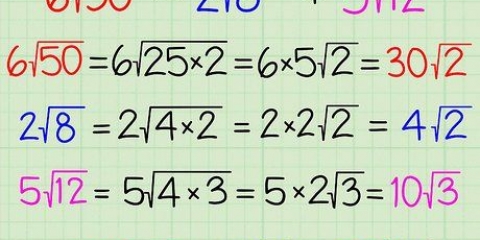 6√50 = 6√25×2 = 6×5√2 = 30√2
2√8 = 2√4×2 = 2×2√2 = 4√2
5√12 = 5√4×3 = 5×2√3 = 10√3